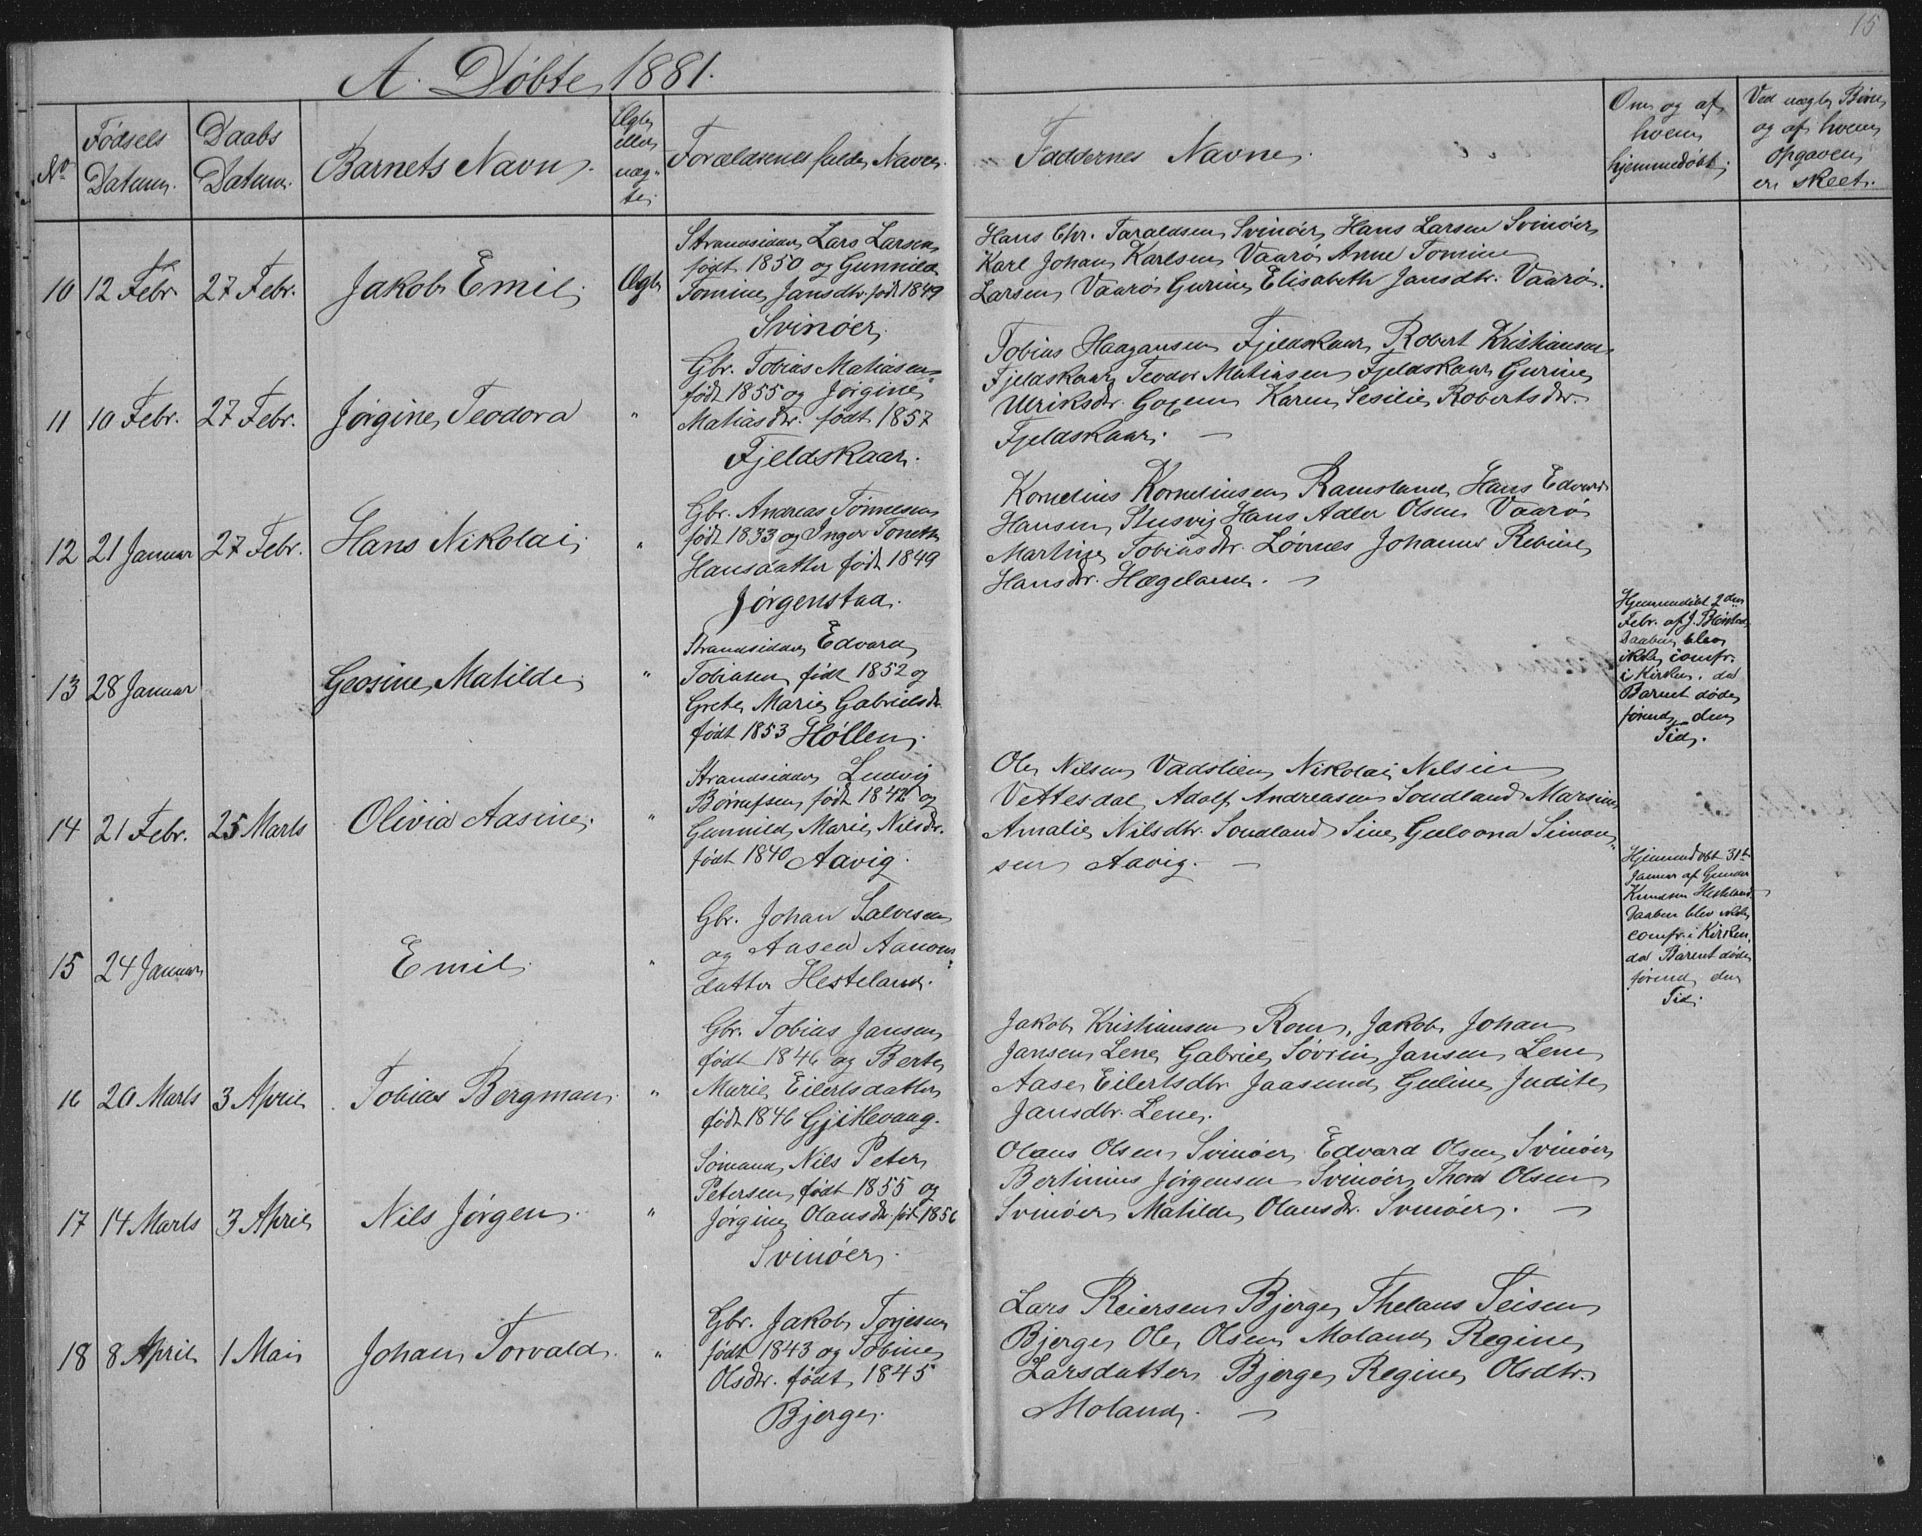 15
A. Døbte 1881.
No
Fødsels
Datum.
Daabs
Datum.
Barnets Navn.
Ægte
eller
uæg-
te.
Forældrenes fulde Navn.
Faddernes Navne.
Om og af
hvem
hjemmedøbt.
Ved uægte Børn
og af hvem
Opgaven
er skeet.
10 12 Febr. 27 Febr. Jakob Emil. Ægte
Strandsidder Lars Larsen
født 1850 og Gunnild
Tomine Jansdtr. født 1849
Svinøer.
Hans Chr. Taraldsen Svinøer, Hans Larsen Svinøer
Karl Johan Karlsen Vaarø Anne Tomine
Larsen Vaarø Gurine Elisabeth Jansdtr. Vaarø.
11 10 Febr. 27 Febr. Jørgine Teodora "
Gbr. Tobias Matiasen
født 1855 og Jørgine
Matiasdtr. født 1857
Fjeldskaar.
Tobias Haagansen Fjeldskaar Robert Kristiansen
Fjeldskaar Teodor Matiasen Fjeldskaar Gurine
Ulriksdtr. Goxem Karen Sesilie Robertsdtr.
Fjeldskaar. —
12 21 Januar 27 Febr. Hans Nikolai "
Gbr. Andreas Tønnesen
født 1833 og Inger Tonette
Hansdatter født 1849
Jørgenstad.
Kornelius Korneliusen Ramsland, Hans Edvard
Hansen Stusvig Hans Adler Olsen Vaarø
Martine Tobiasdtr. Løvnes Johanne Rebine
Hansdtr. Hægeland. —
13 28 Januar Geosine Matilde "
Strandsidder Edvard
Tobiasen født 1852 og
Grete Marie Gabrielsdtr.
født 1853 Høllen.
Hjemmedøbt 2den
Febr. af J. Børstad
Daaben blev
ikke comfr.
i Kirken. da
Barnet døde
førend den
Tid.
14 21 Febr. 25 Marts Olivia Aasine. "
Strandsidder Ludvig
Børrufsen født 1842 og
Gunnild Marie Nilsdtr.
født 1840 Aavig.
Ole Nilsen Vadslien Nikolai Nilsen
Vettesdal, Adolf Andreassen Sondland Marsine
Amalie Nilsdtr. Sondland Sine Gulvona Simon-
sen Aavig. —
15 24 Januar Emil. "
Gbr. Johan Salvesen
og Aased Aanons-
datter Hesteland.
Hjemmedøbt 31te
Januar af Gunder
Knudsen Hesteland
Daaben blev ikke
comfr. i Kirken.
da Barnet døde
førend den
Tid.
16 20 Marts 3 April Tobias Bergman. "
Gbr. Tobias Jansen
født 1846 og Berte
Marie Eilertsdatter
født 1846 Gjitlevaag.
Jakob Kristiansen Rom, Jakob Johan
Jansen Lene Gabriel Søvrin Jansen Lene
Aase Eilertsdtr. Jaasund Guline Judite
Jansdtr. Lene.
17 14 Marts 3 April Nils Jørgen. "
Sømand Nils Peter
Petersen født 1855 og
Jørgine Olausdtr. født 1856
Svinøer.
Olaus Olsen Svinøer Edvard Olsen Svinøer
Bertinius Jørgensen Svinøer Thora Olsen
Svinøer Matilde Olausdtr. Svinøer. —
18 8 April 1 Mai Johan Torvald. "
Gbr. Jakob Torjesen
født 1843 og Tobine
Olsdtr. født 1845
Bjerge.
Lars Reiersen Bjerge, Thelaus Teisen
Bjerge Ole Olsen Moland Regine
Larsdatter Bjerge Regine Olsdtr.
Moland. —